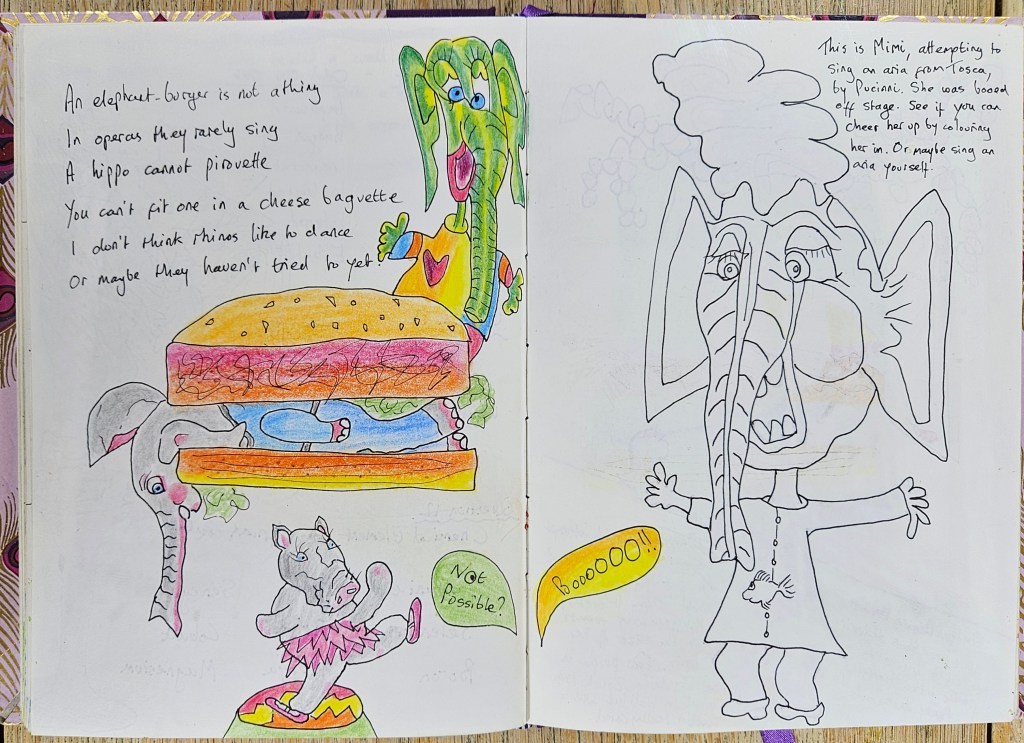 An elephant-burger is not a thing
In operas they rarely sing
A hippo cannot pirouette
You can't fit one in a cheese baguette
I don't think rhinos like to dance
Or maybe they haven't tried to yet!
Not
Possible?
This is Mimi, attempting to
sing an aria from Tosca,
by Puccini. She was booed
off stage. See if you can
cheer her up by colouring
her in. Or maybe sing an
aria yourself.
BoooOOO!!